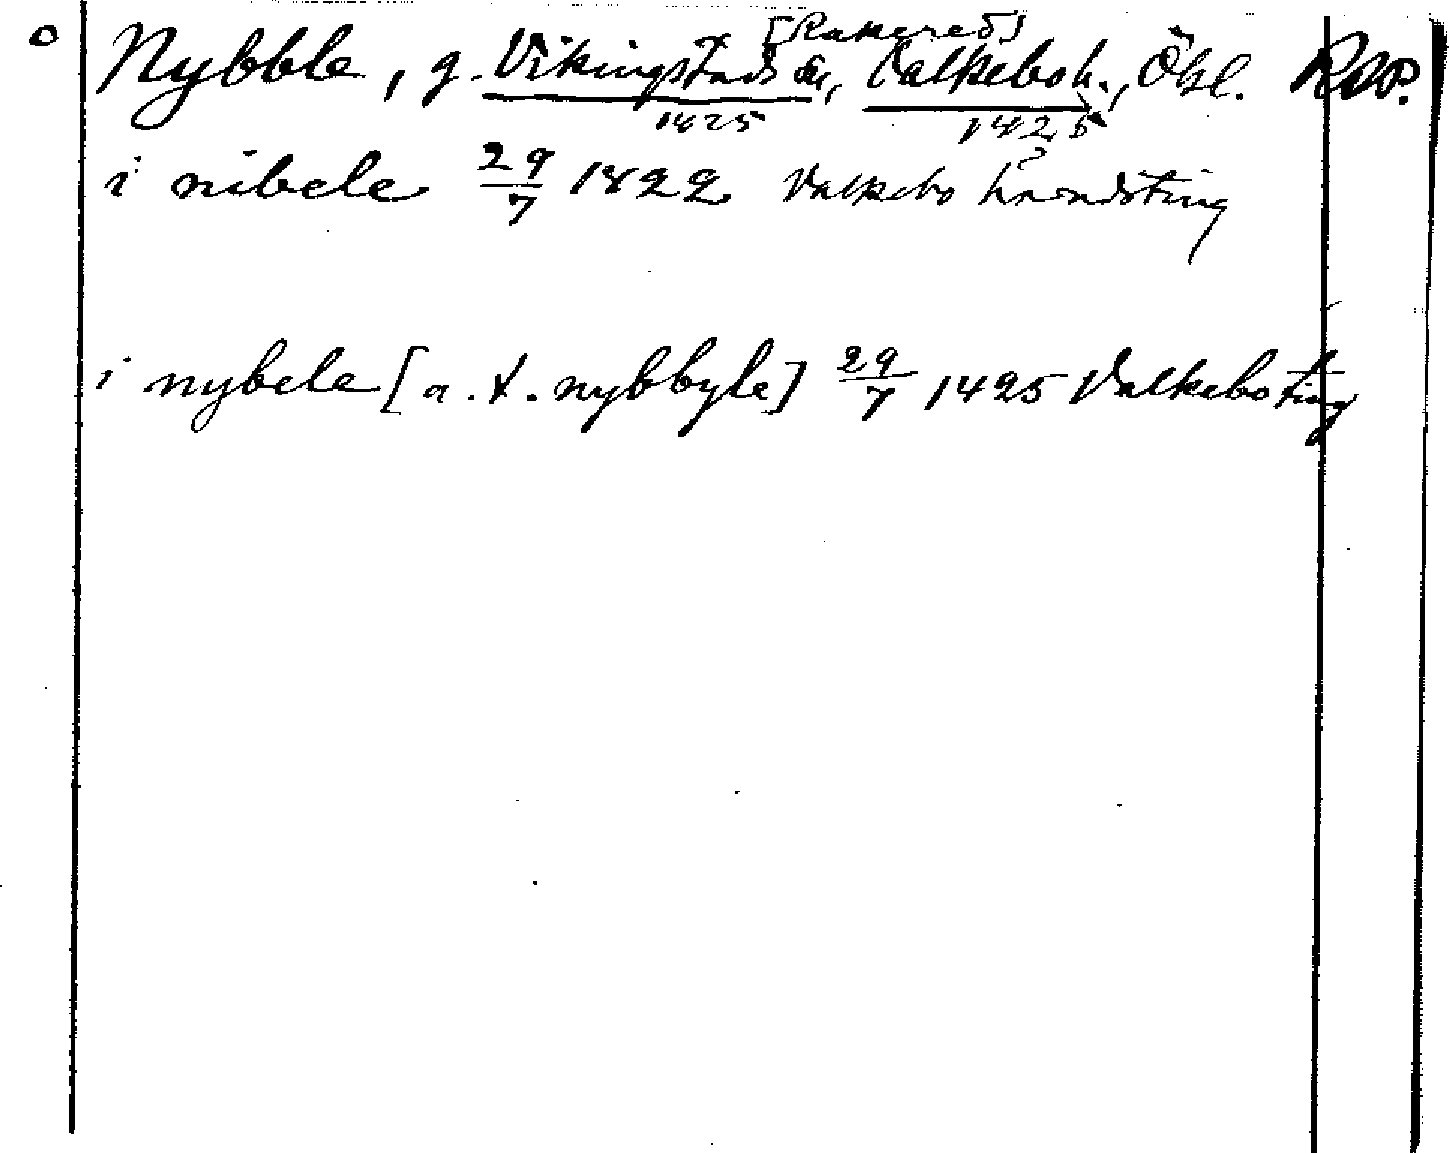 Nybble, g. Vikingstads sn, Valkebo h., Ögl. RAp.
1425 1425
i nibele 29/7 1422 Valkebo häradsting
i nybele [a. x. nybbyle] 29/7 1425 Valkebo ting